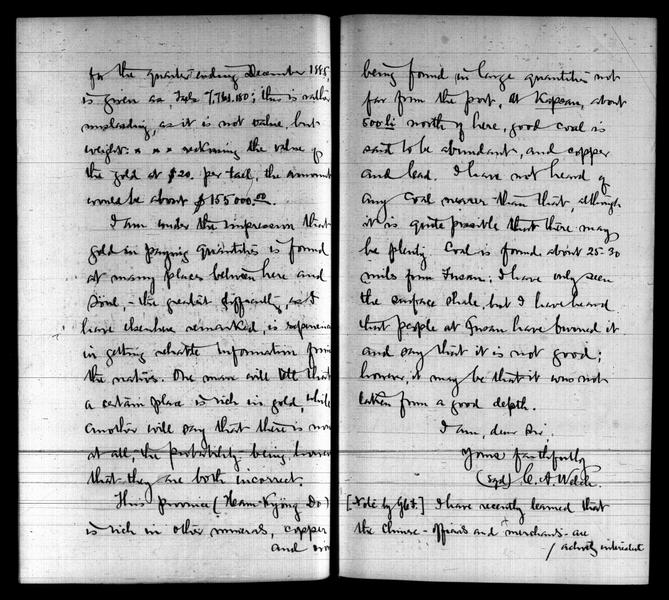 for the quarter ending December 1885,
is given as Taels 7,761.180; this is rather
misleading, as it is not value but
weight: x x x reckoning the value of
the gold at $20. per tael, the amount
would be about $155000.00.
I am under the impression that
gold in paying quantities is found
at many places between here and
Söul, - the greatest difficulty, as I
have elsewhere remarked, is experienced
in getting reliable information from
the natives. One man will tell that
a certain place is rich in gold, while
another will say that there is none
at all, the probability being, however
that they are both incorrect.
This province (Ham-Kyöng Do)
is rich in other minerals, copper
and iron
being found in large quantities not
far from the port, at Kapsan, about
500 li north of here, good coal is
said to be abundant, and copper
and lead. I have not heard of
any coal nearer than that, although
it is quite possible that there may
be plenty. Coal is found about 25-30
miles from Fusan; I have only seen
the surface shale, but I have heard
that people at Fusan have burned it
and say that it is not good;
however, it may be that it was not
taken from a good depth.
I am, dear Sir,
Yours faithfully
(Sgd) C. A. Welch.
[Note by GCF.] I have recently learned that
the Chinese - officials and merchants - are
/ actively interested